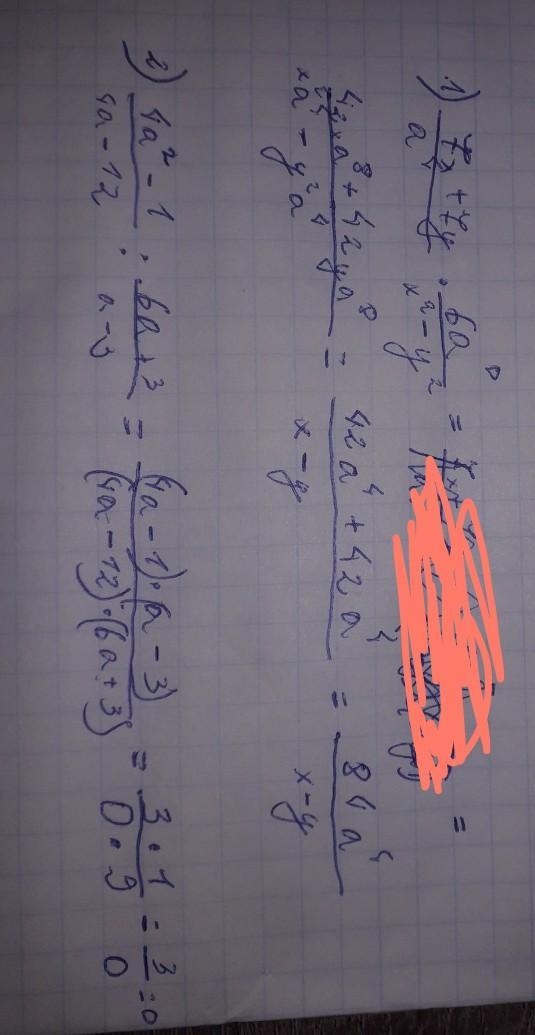 1) 7x+7y/a⁴ · 6a⁸/x²-y² = =
42xa⁸+42ya⁸/x²a⁴-y²a⁴ = 42a⁴+42a⁴/x-y = 84a⁴/x-y
2) 4a²-1/4a-12 : 6a+3/a-3 = (4a-1)·(a-3)/(4a-12)·(6a+3) = 3·1/0·9 = 3/0 = 0